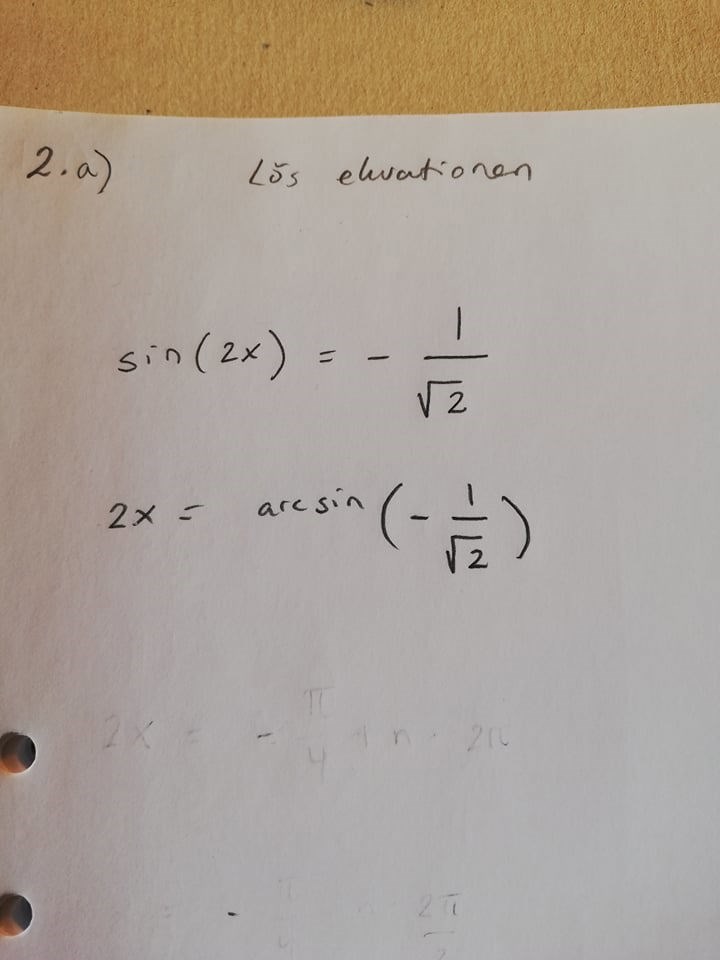 2.a) Lös ekvationen
sin(2x) = - 1/√2
2x = arcsin(- 1/√2)
2x = - π/4 + n · 2π